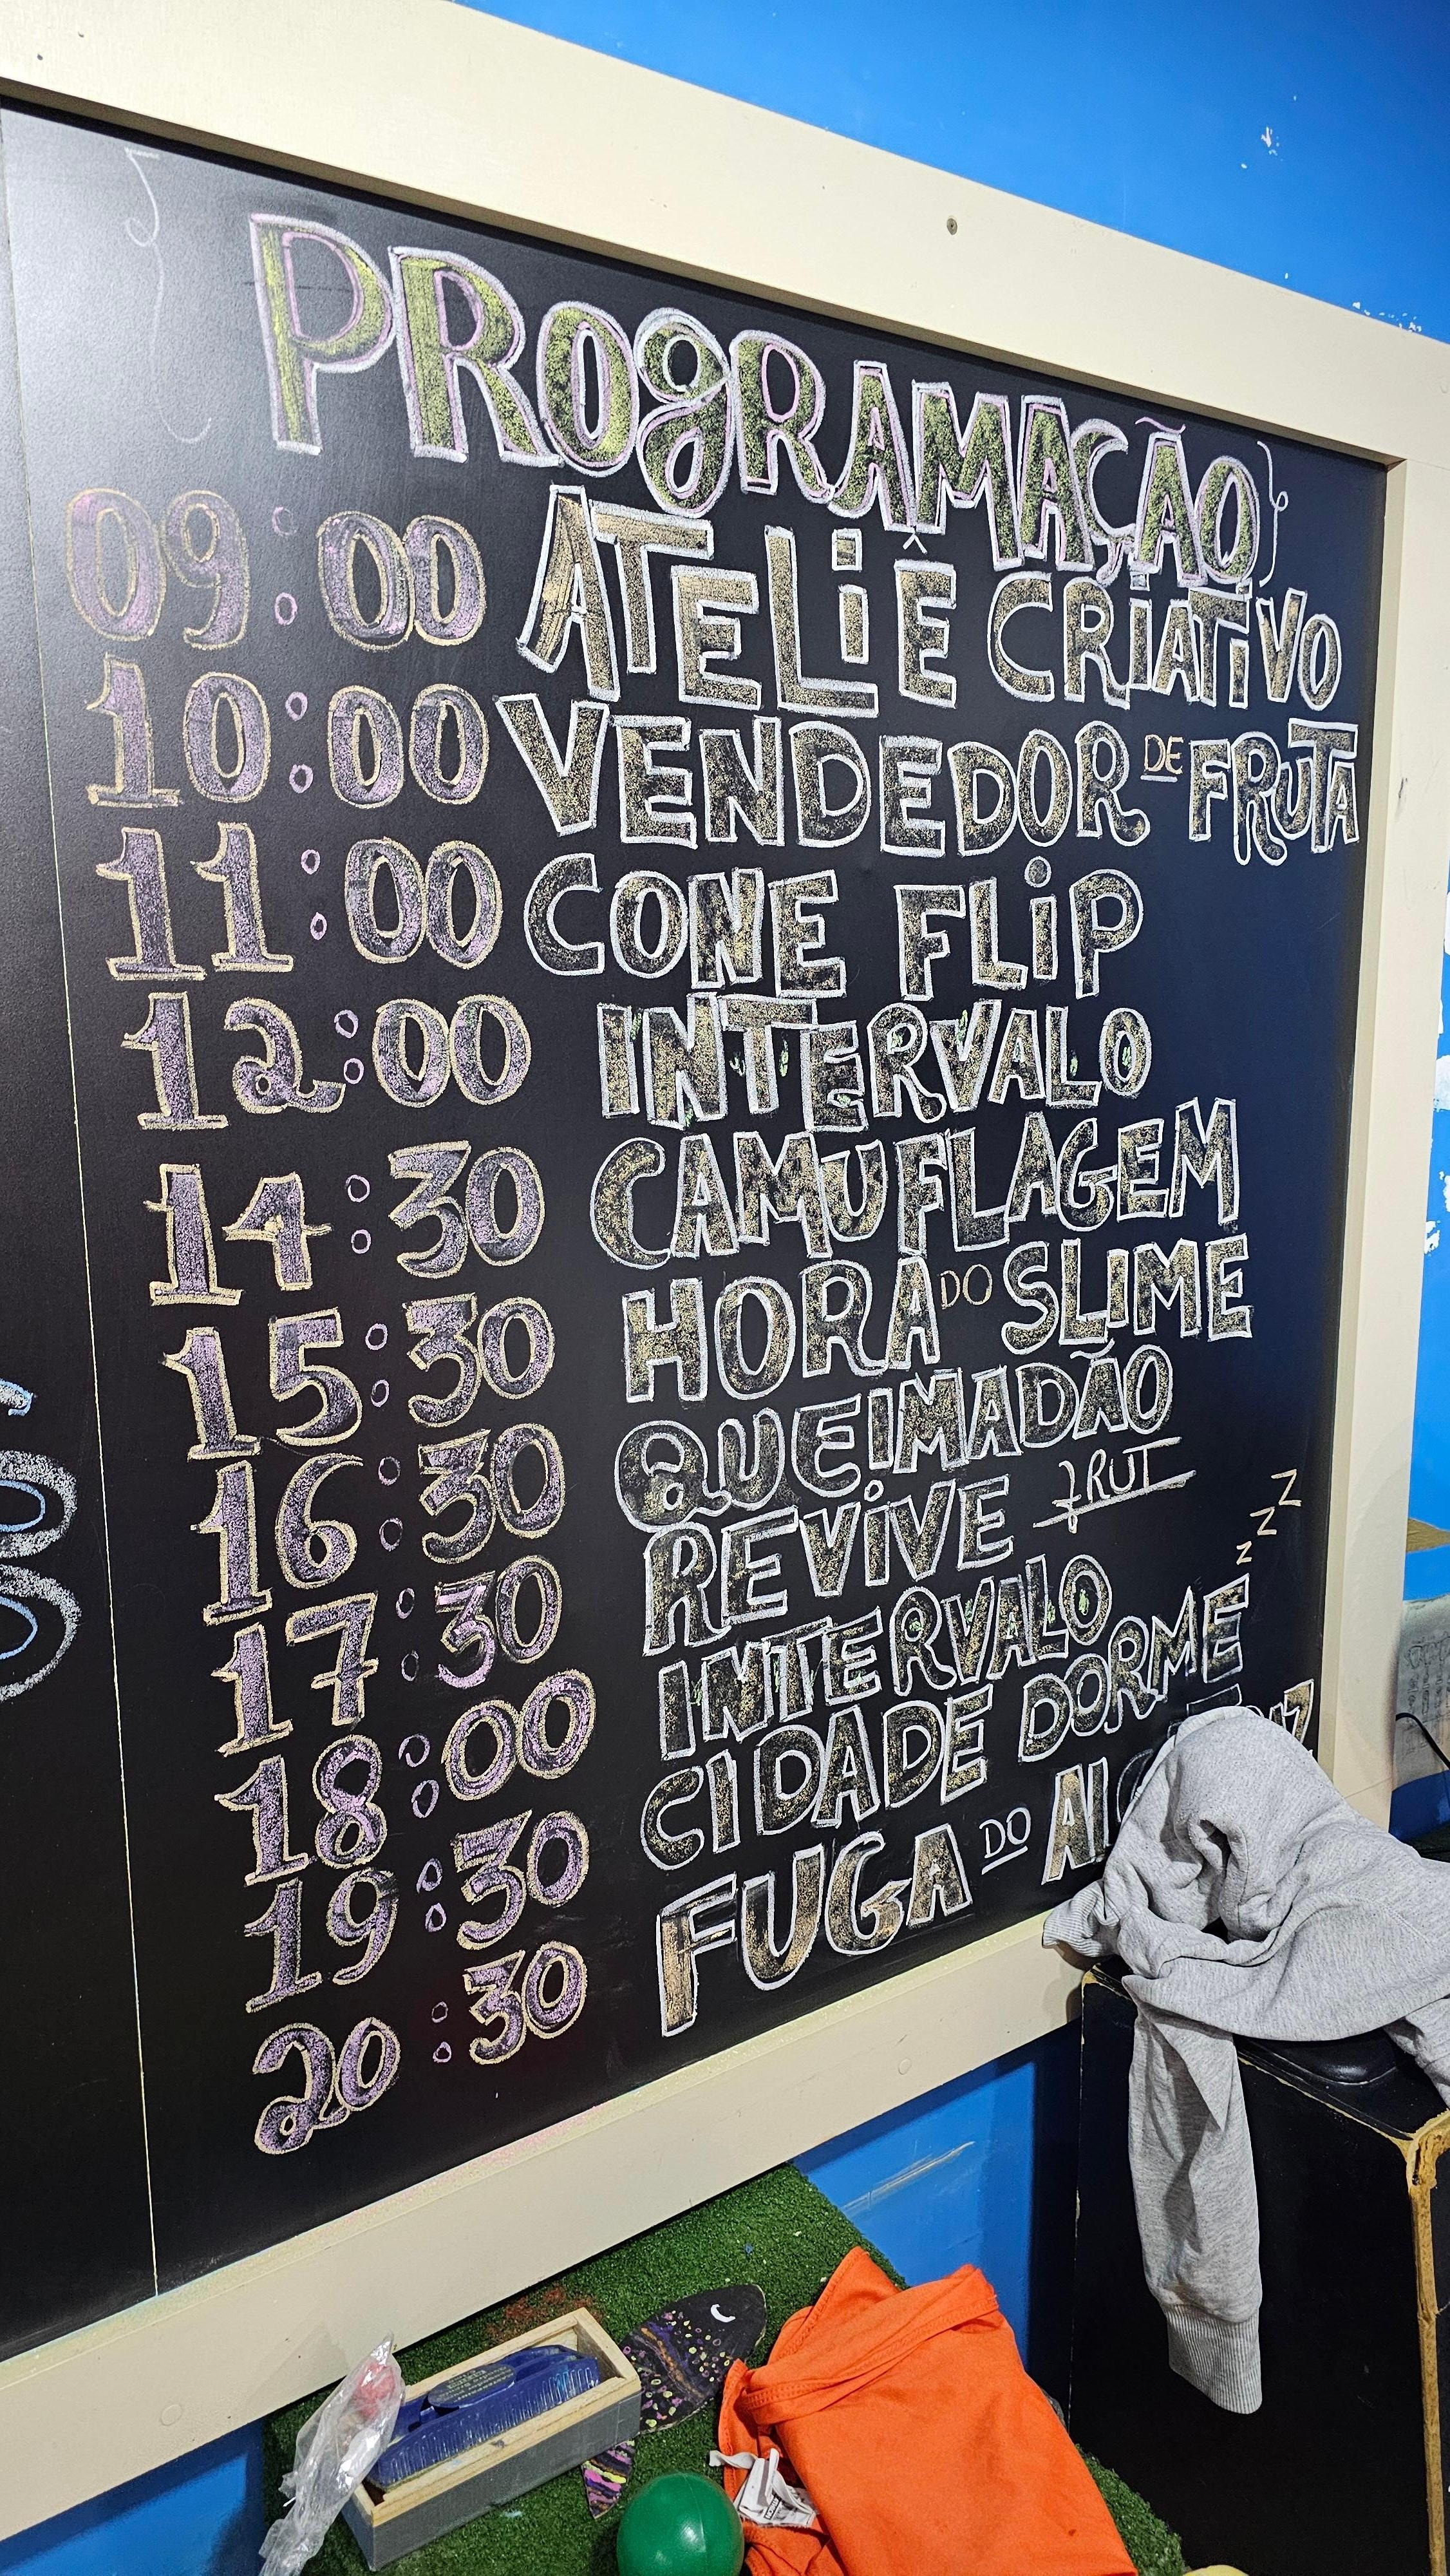 PROGRAMAÇÃO
09:00 ATELIÊ CRIATIVO
10:00 VENDEDOR DE FRUTA
11:00 CONE FLIP
12:00 INTERVALO
14:30 CAMUFLAGEM
15:30 HORA DO SLIME
16:30 QUEIMADÃO
17:30 REVIVE FRUT
18:00 INTERVALO
19:30 CIDADE DORME ZZZ
20:30 FUGA DO